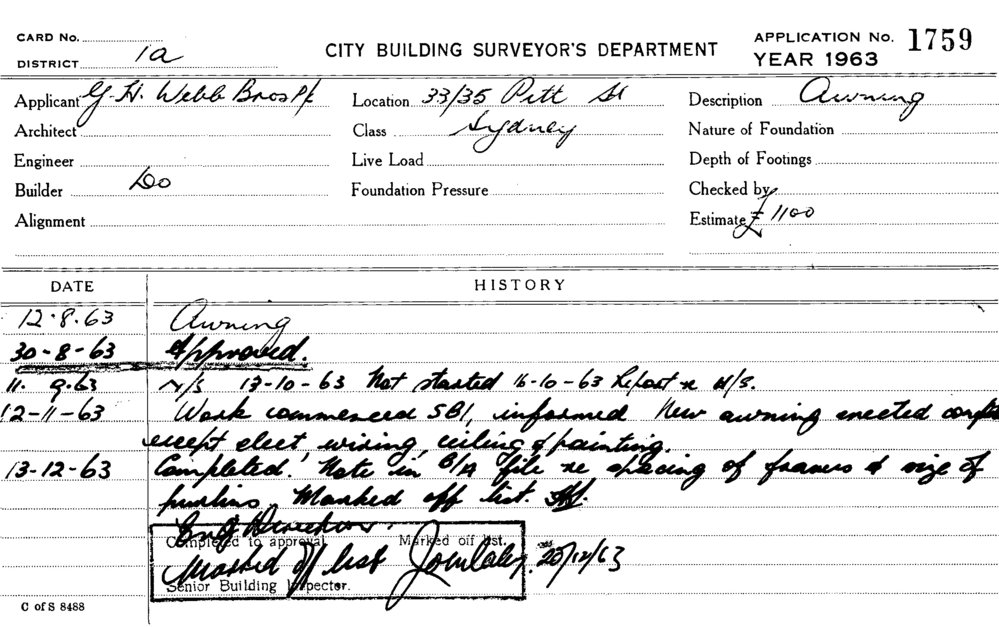 CARD No.
DISTRICT 1a
CITY BUILDING SURVEYOR'S DEPARTMENT
APPLICATION No. 1759
YEAR 1963
Applicant G. H. Webb Bros P/L
Location 33/35 Pitt St
Description Awning
Architect
Class Sydney
Nature of Foundation
Engineer
Live Load
Depth of Footings
Builder Do
Foundation Pressure
Checked by
Alignment
Estimate £1100
DATE HISTORY
12.8.63 Awning
30-8-63 Approved.
11. 9.63 N/S 13-10-63 Not started 16-10-63 Report re N/S.
12-11-63 Work commenced SBI, informed New awning erected
except elect, wiring, ceiling & painting.
13-12-63 Completed. Note in B/A file re spacing of & size of
purlins. Marked off list.
Completed to approval Marked off list.
Marked off list 20/12/63
Senior Building Inspector.
C of S 8488